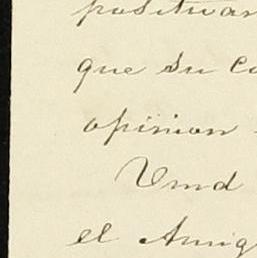 positivam
que su co
opinion
Vmd
el Amig